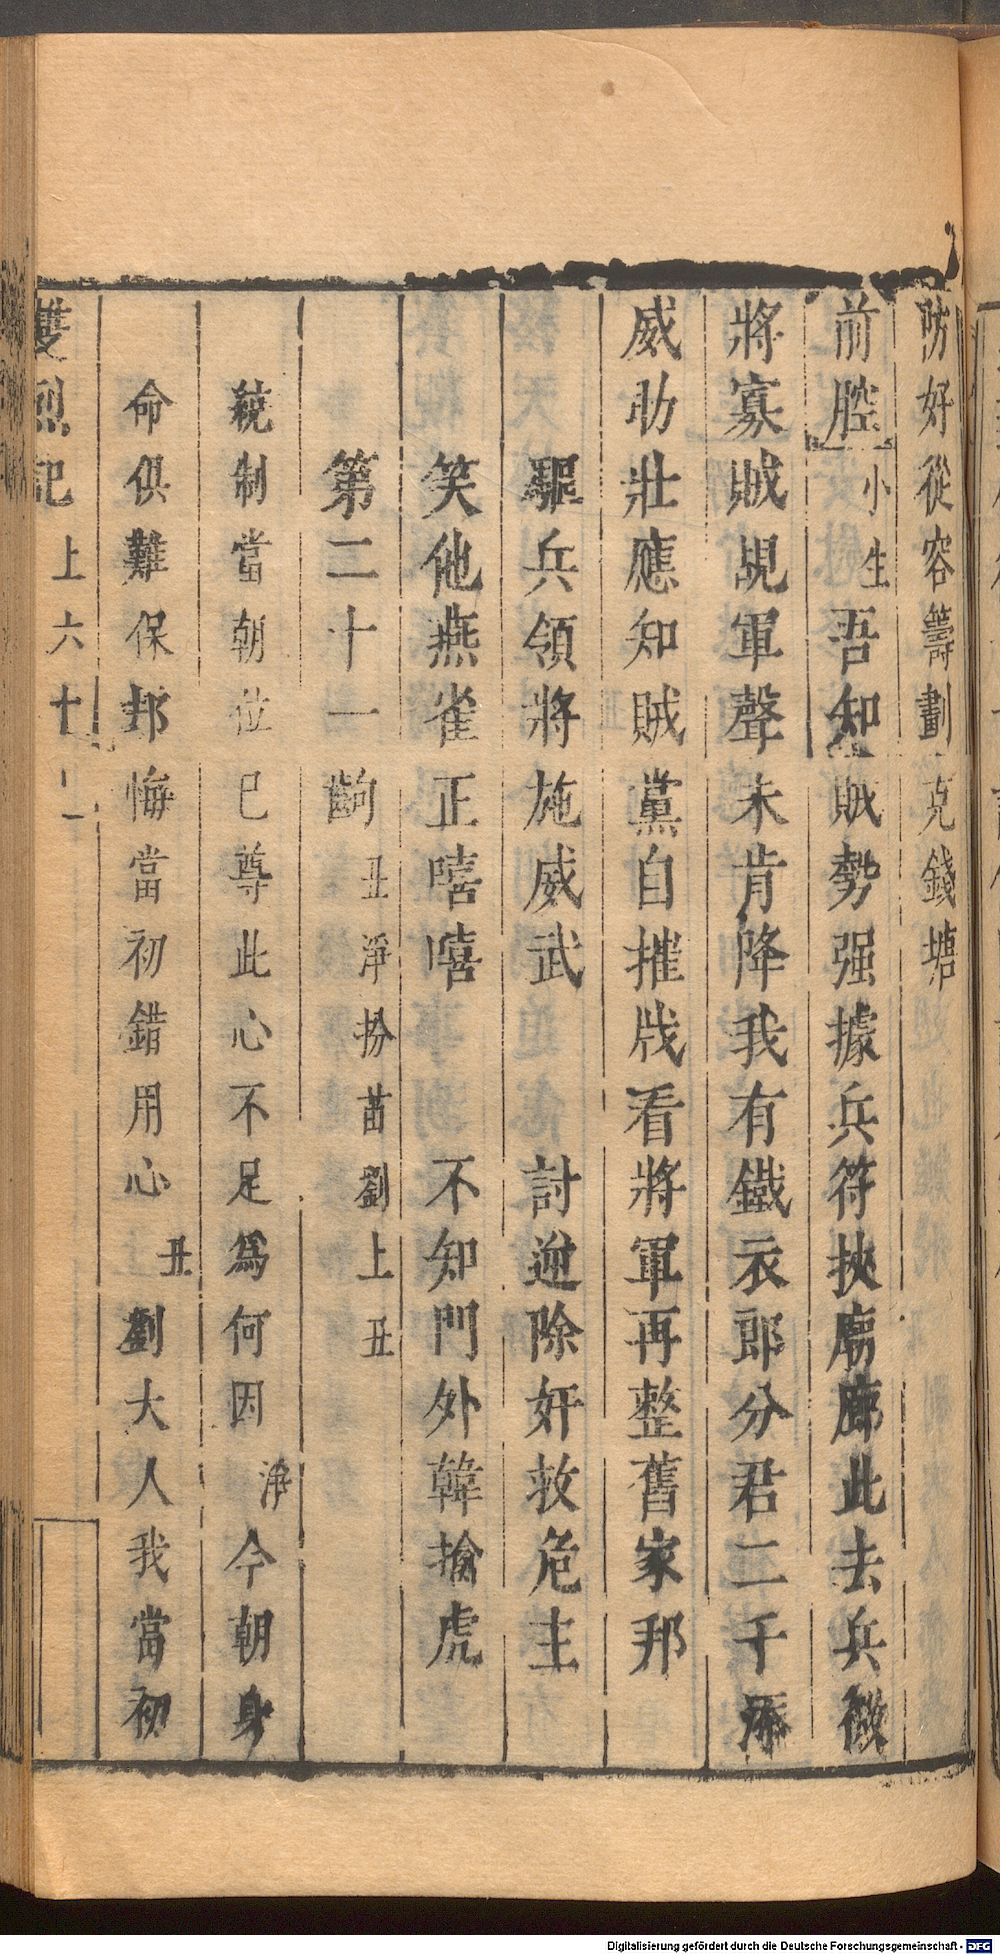 防好從容籌劃克錢塘
前腔小生吾知賊勢强據兵符挾廟廊此去兵微
將寡賊覘軍聲未肯降我有鐵衣郎分君二千添
威助壯應知賊黨自摧戕看將軍再整舊家邦
驅兵領將施威武　討逆除奸救危主
笑他燕雀正嘻嘻　不知門外韓擒虎
第二十一齣丑淨扮苗劉上丑
統制當朝位已尊此心不足爲何因淨今朝身
命俱難保却悔當初錯用心丑劉大人我當初
雙烈記　上六十一
Digitalisierung gefördert durch die Deutsche Forschungsgemeinschaft - DFG